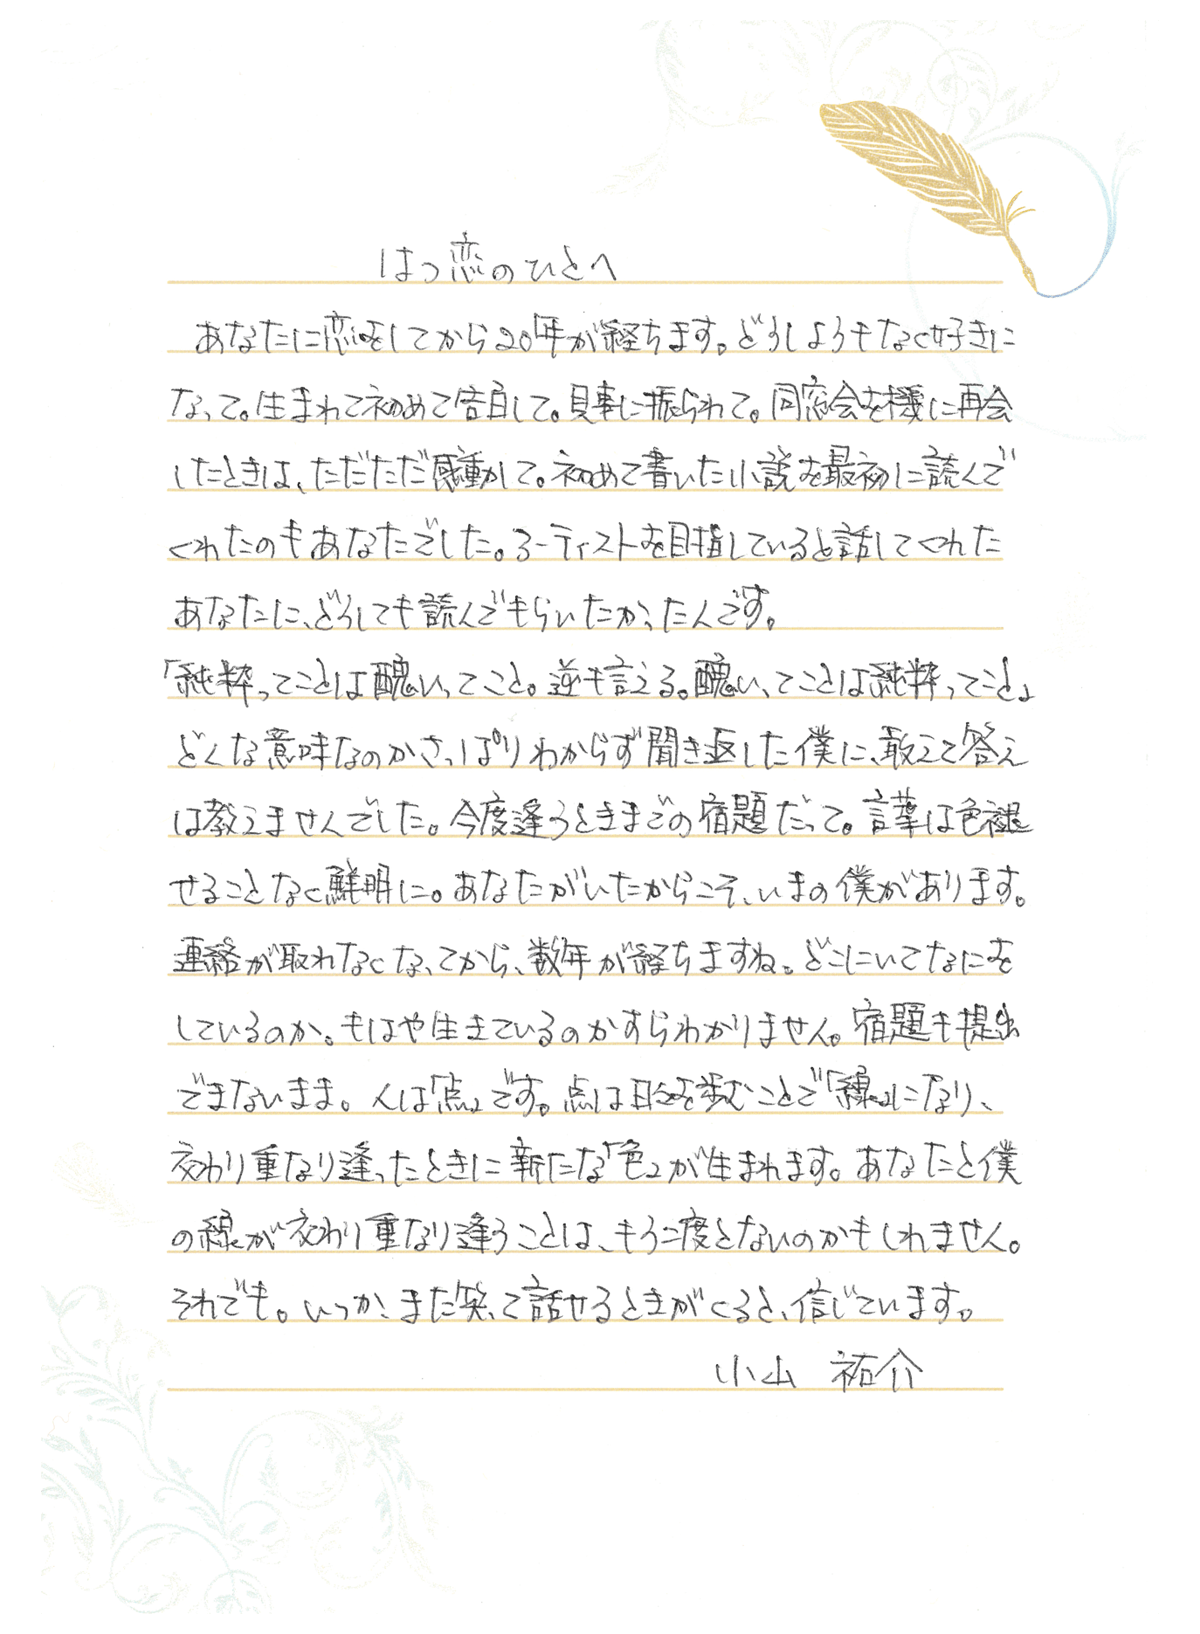 はつ恋のひとへ
あなたに恋をしてから20年が経ちます。どうしようもなく好きに
なって。生まれて初めて告白して。見事に振られて。同窓会を機に再会
したときは、ただただ感動して。初めて書いた小説を最初に読んで
くれたのもあなたでした。アーティストを目指していると話してくれた
あなたに、どうしても読んでもらいたかったんです。
「純粋ってことは醜いってこと。逆も言える。醜いってことは純粋ってこと」
どんな意味なのかさっぱりわからず聞き返した僕に、敢えて答え
は教えませんでした。今度逢うときまでの宿題だって。言葉は色褪
せることなく鮮明に。あなたがいたからこそ、いまの僕があります。
連絡が取れなくなってから、数年が経ちますね。どこにいてなにを
しているのか。もはや生きているのかすらわかりません。宿題も提出
できないまま。人は「点」です。点は日々を歩むことで「線」になり、
交わり重なり逢ったときに新たな「色」が生まれます。あなたと僕
の線が交わり重なり逢うことは、もう二度とないのかもしれません。
それでも。いつか、また笑って話せるときがくると、信じています。
小山 祐介